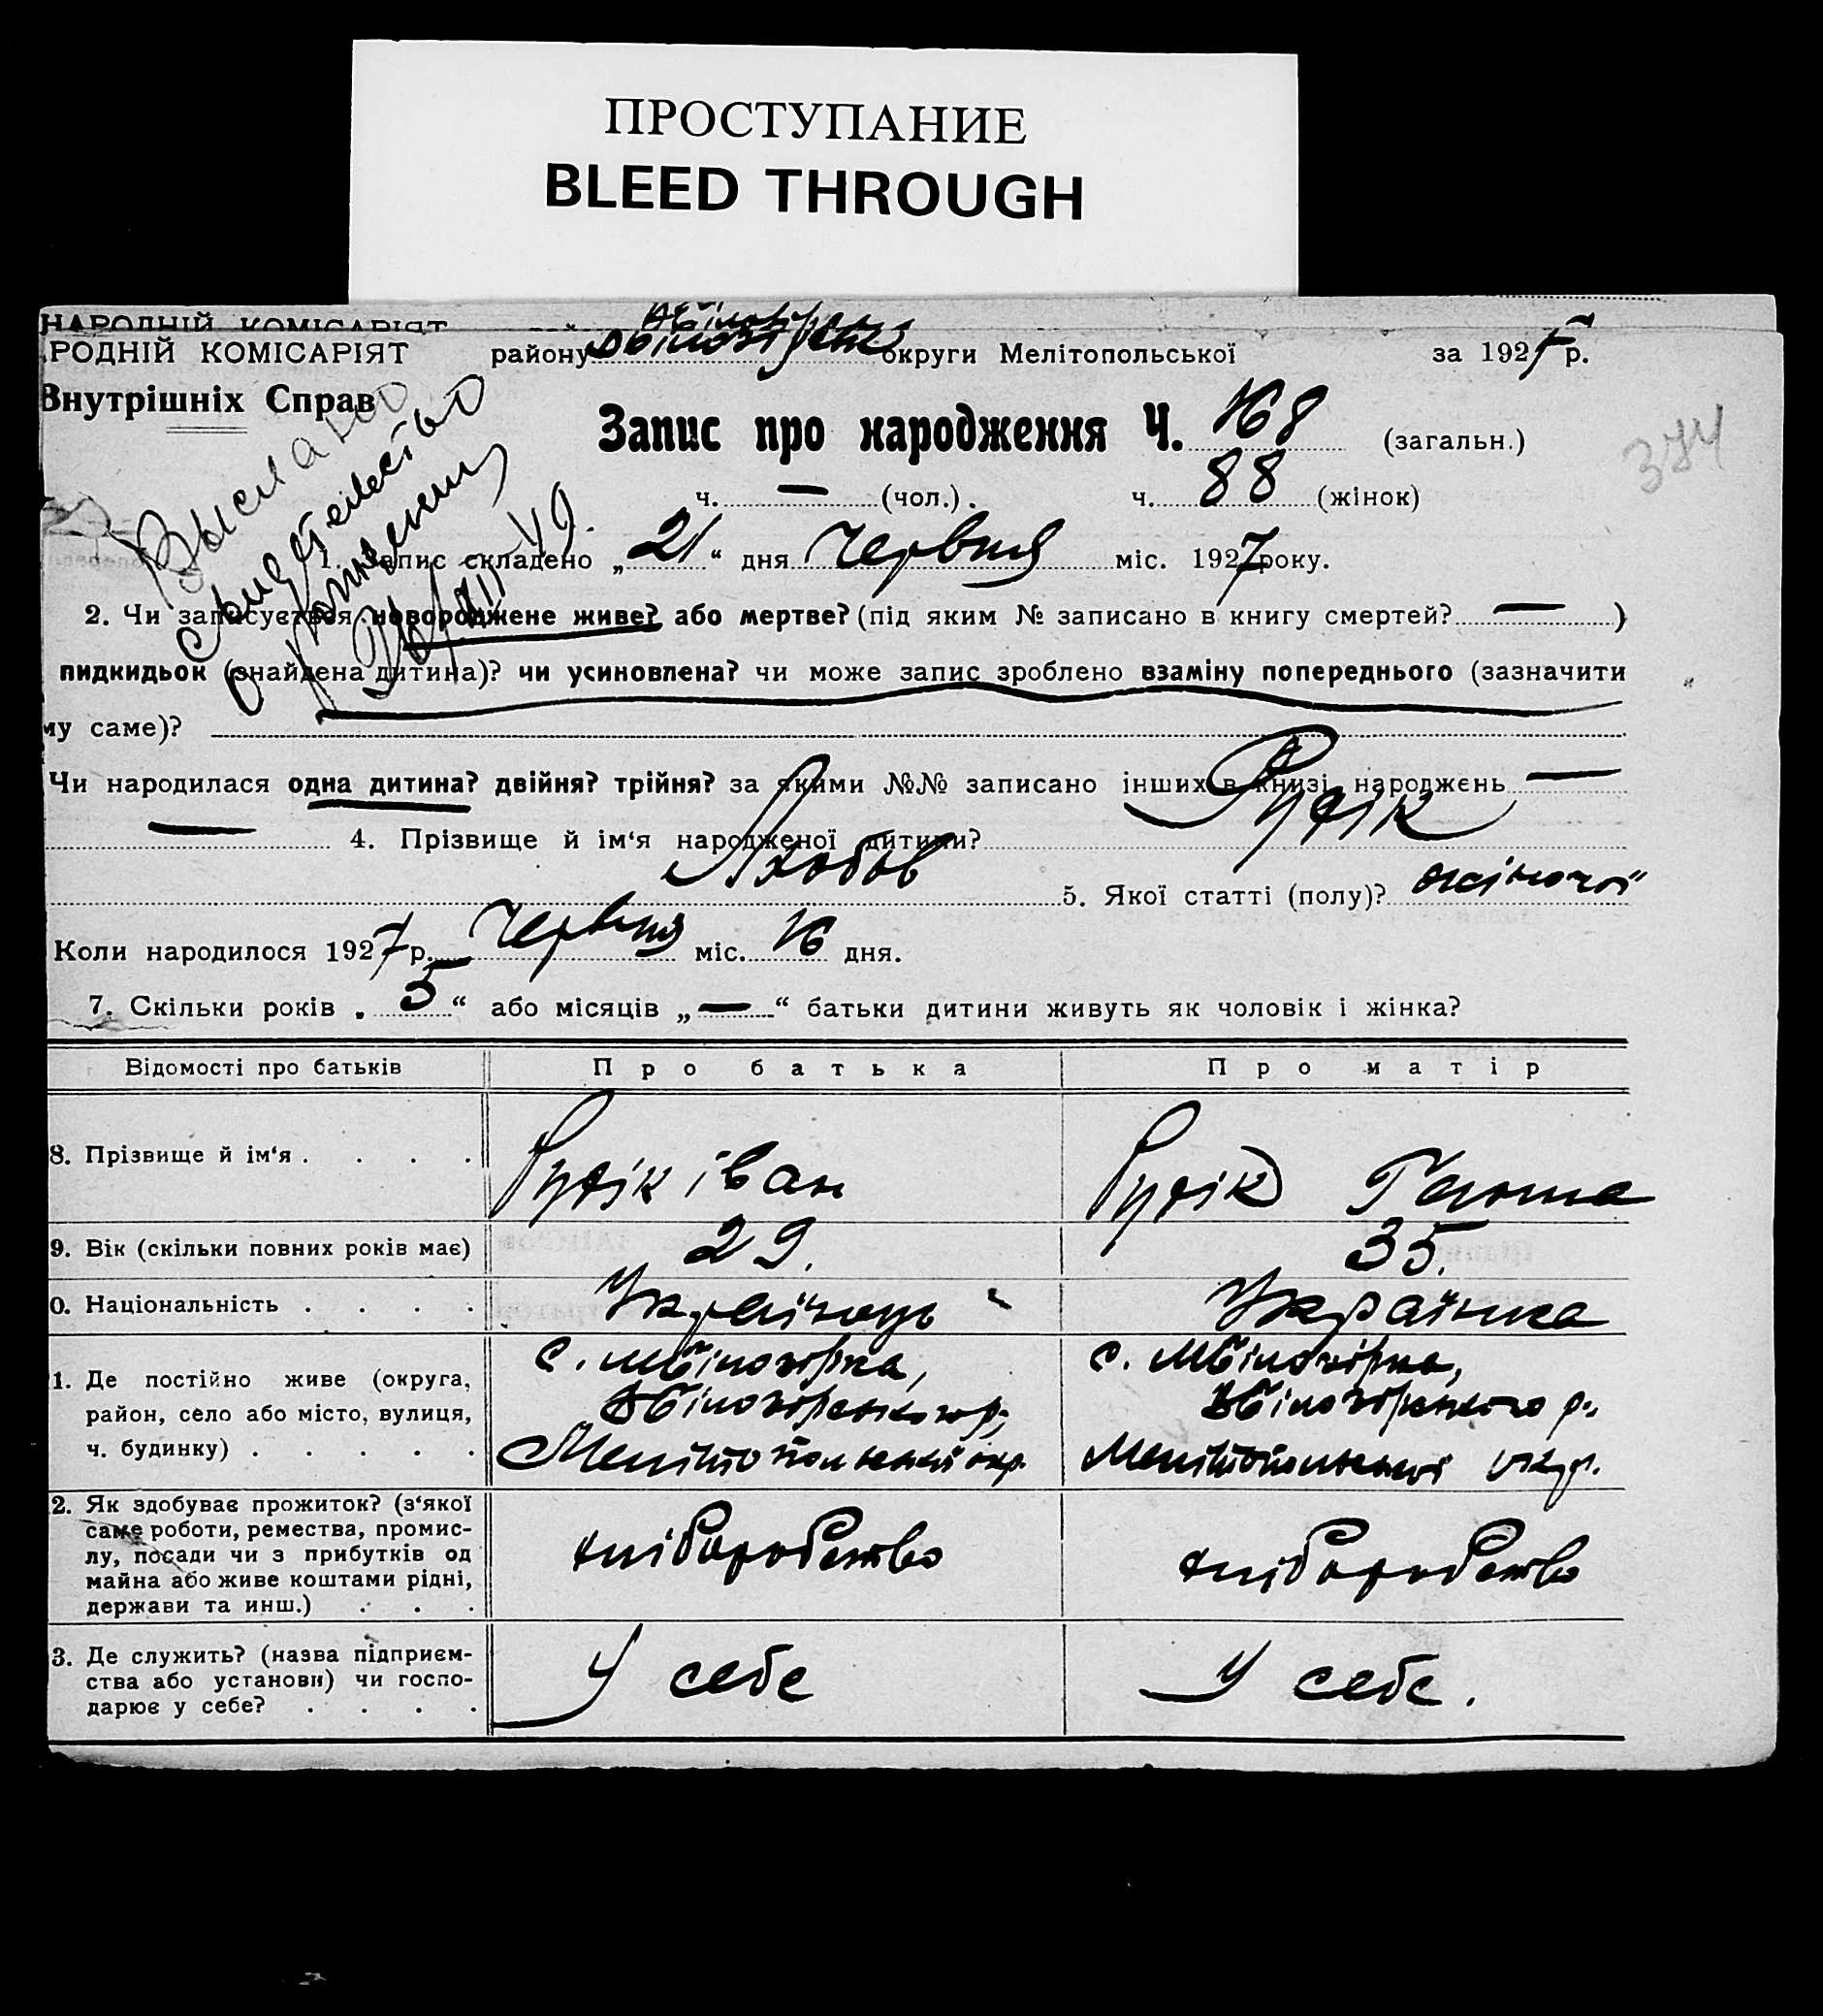 ПРОСТУПАНИЕ
BLEED THROUGH
НАРОДНІЙ КОМІСАРІЯТ
РОДНІЙ КОМІСАРІЯТ району округи Мелітопольської за 1927 р.
Внутрішніх Справ
Запис про народження Ч. 168 (загальн.)
374
ч. — (чол.). ч. 88 (жінок)
Выслано
свидетельство
о рождении
1. Запис складено „21“ дня Червня міс. 1927 року.
2. Чи записується новороджене живе? або мертве? (під яким № записано в книгу смертей? — )
пидкидьок (знайдена дитина)? чи усиновлена? чи може запис зроблено взаміну попереднього (зазначити
му саме)?
Чи народилася одна дитина? двійня? трійня? за якими №№ записано інших в книзі народжень —
— 4. Прізвище й ім‘я народженої дитини? Рудік
Любов 5. Якої статті (полу)? жіночої
Коли народилося 1927 р. Червня міс. 16 дня.
7. Скільки років „5“ або місяців „—“ батьки дитини живуть як чоловік і жінка?
Відомості про батьків Про батька Про матір
8. Прізвище й ім‘я . . . . Рудік Іван Рудік
9. Вік (скільки повних років має) 29. 35.
0. Національність . . . . Українець Українка
1. Де постійно живе (округа, район, село або місто, вулиця, ч. будинку) . . . . .
с. Мбілозірка, с. Мбілозірка,
Вбілозірського р., Вбілозірського р.,
Мелітопольської окр. Мелітопольської окр.
2. Як здобуває прожиток? (з‘якої
саме роботи, ремества, промис-
лу, посади чи з прибутків од
майна або живе коштами рідні,
держави та инш.) . . .
хліборобство хліборобство
3. Де служить? (назва підприєм-
ства або установи) чи госпо-
дарює у себе? . . . .
У себе У себе.